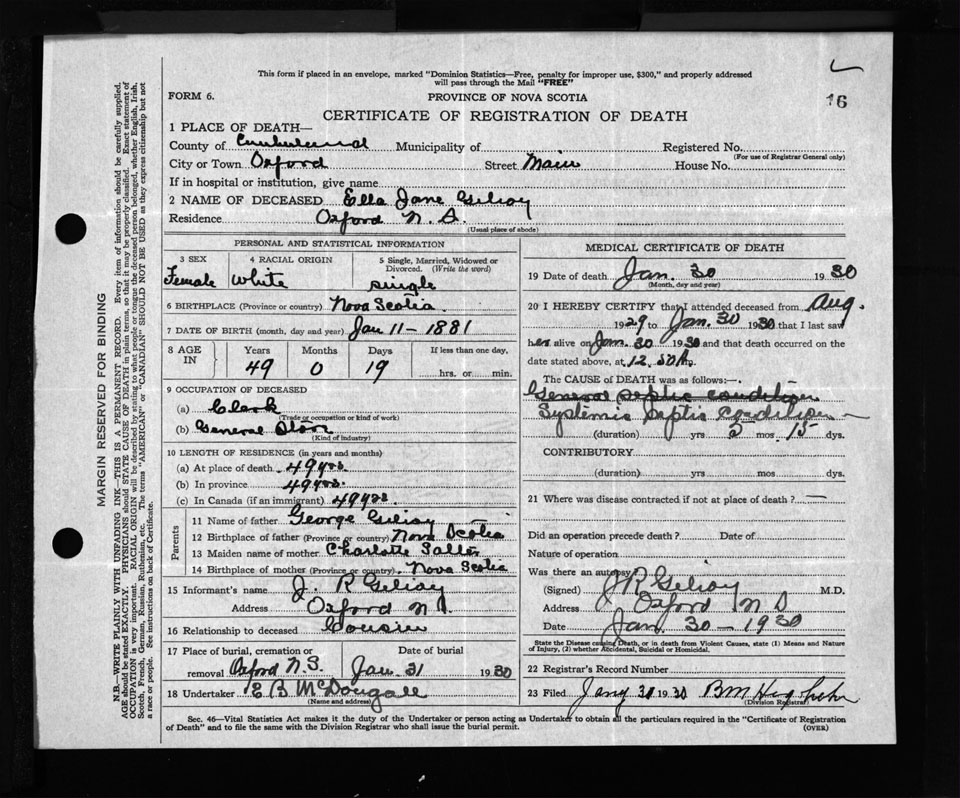 This form if placed in an envelope, marked "Dominion Statistics—Free, penalty for improper use, $300," and properly addressed
will pass through the Mail "FREE"
16
FORM 6.
PROVINCE OF NOVA SCOTIA
CERTIFICATE OF REGISTRATION OF DEATH
1 PLACE OF DEATH—
County of Cumberland Municipality of Registered No.
(For use of Registrar General only)
City or Town Oxford Street Main House No.
If in hospital or institution, give name
2 NAME OF DECEASED Ella Jane Gilroy
Residence Oxford N. S.
(Usual place of abode)
PERSONAL AND STATISTICAL INFORMATION
3 SEX 4 RACIAL ORIGIN 5 Single, Married, Widowed or
Divorced. (Write the word)
Female White single
6 BIRTHPLACE (Province or country) Nova Scotia
7 DATE OF BIRTH (month, day and year) Jan 11 - 1881
8 AGE IN Years Months Days If less than one day,
49 0 19 hrs. or min.
9 OCCUPATION OF DECEASED
(a) Clerk
(Trade or occupation or kind of work)
(b) General Store
(Kind of industry)
10 LENGTH OF RESIDENCE (in years and months)
(a) At place of death 49 yrs.
(b) In province 49 yrs.
(c) In Canada (if an immigrant) 49 yrs
Parents
11 Name of father George Gilroy
12 Birthplace of father (Province or country) Nova Scotia
13 Maiden name of mother Charlotte
14 Birthplace of mother (Province or country) Nova Scotia
15 Informant's name J. R Gilroy
Address Oxford N S.
16 Relationship to deceased Cousin
17 Place of burial, cremation or removal Date of burial
Oxford N.S. Jan. 31 1930
18 Undertaker E B McDougall
(Name and address)
MEDICAL CERTIFICATE OF DEATH
19 Date of death Jan. 30 1930
(Month, day and year)
20 I HEREBY CERTIFY that I attended deceased from Aug.
1929 to Jan. 30 1930 that I last saw
her alive on Jan. 30 1930 and that death occurred on the
date stated above, at 12.50 A.
The CAUSE of DEATH was as follows:—
General septic condition
Systemic septic condition
(duration) yrs 2 mos 15 dys.
CONTRIBUTORY
(duration) yrs mos dys.
21 Where was disease contracted if not at place of death? —
Did an operation precede death? Date of
Nature of operation
Was there an autopsy
(Signed) J R Gilroy M.D.
Address Oxford N S
Date Jan 30 - 1930
State the Disease causing Death, or in death from Violent Causes, state (1) Means and Nature
of Injury, (2) whether Accidental, Suicidal or Homicidal.
22 Registrar's Record Number
23 Filed Jany 30 1930 B M
(Division Registrar)
Sec. 46—Vital Statistics Act makes it the duty of the Undertaker or person acting as Undertaker to obtain all the particulars required in the "Certificate of Registration
of Death" and to file the same with the Division Registrar who shall issue the burial permit.
(OVER)
MARGIN RESERVED FOR BINDING
N.B.—WRITE PLAINLY WITH UNFADING INK—THIS IS A PERMANENT RECORD. Every item of information should be carefully supplied.
AGE should be stated EXACTLY. PHYSICIANS should STATE CAUSE OF DEATH in plain terms, so that it may be properly classified. Exact statement of
OCCUPATION is very important. RACIAL ORIGIN will be described by stating to what people or tongue the deceased person belonged, whether English, Irish,
Scotch, French, German, Russian, Ruthenian, etc. The terms "AMERICAN" or "CANADIAN" SHOULD NOT BE USED as they express citizenship but not
a race or people. See instructions on back of Certificate.